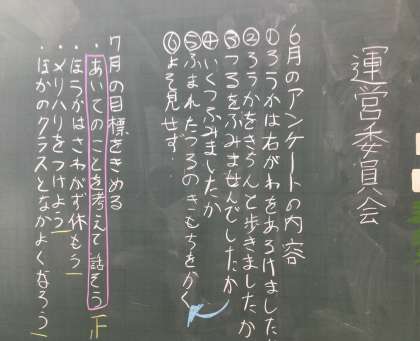 運営委員会
6月のアンケートの内容
①ろうかは右がわをあるけました
②ろうかをきちんと歩きましたか
③つるをふみませんでしたか
④いくつふみましたか
⑤ふまれたつるのきもちをかく
⑥よそ見せず・・
7月の目標をきめる
・あいてのことを考えて話そう 正
・ほうかはさわがず休もう 一
・メリハリをつけよう 一
・ほかのクラスとなかよくなろう 一